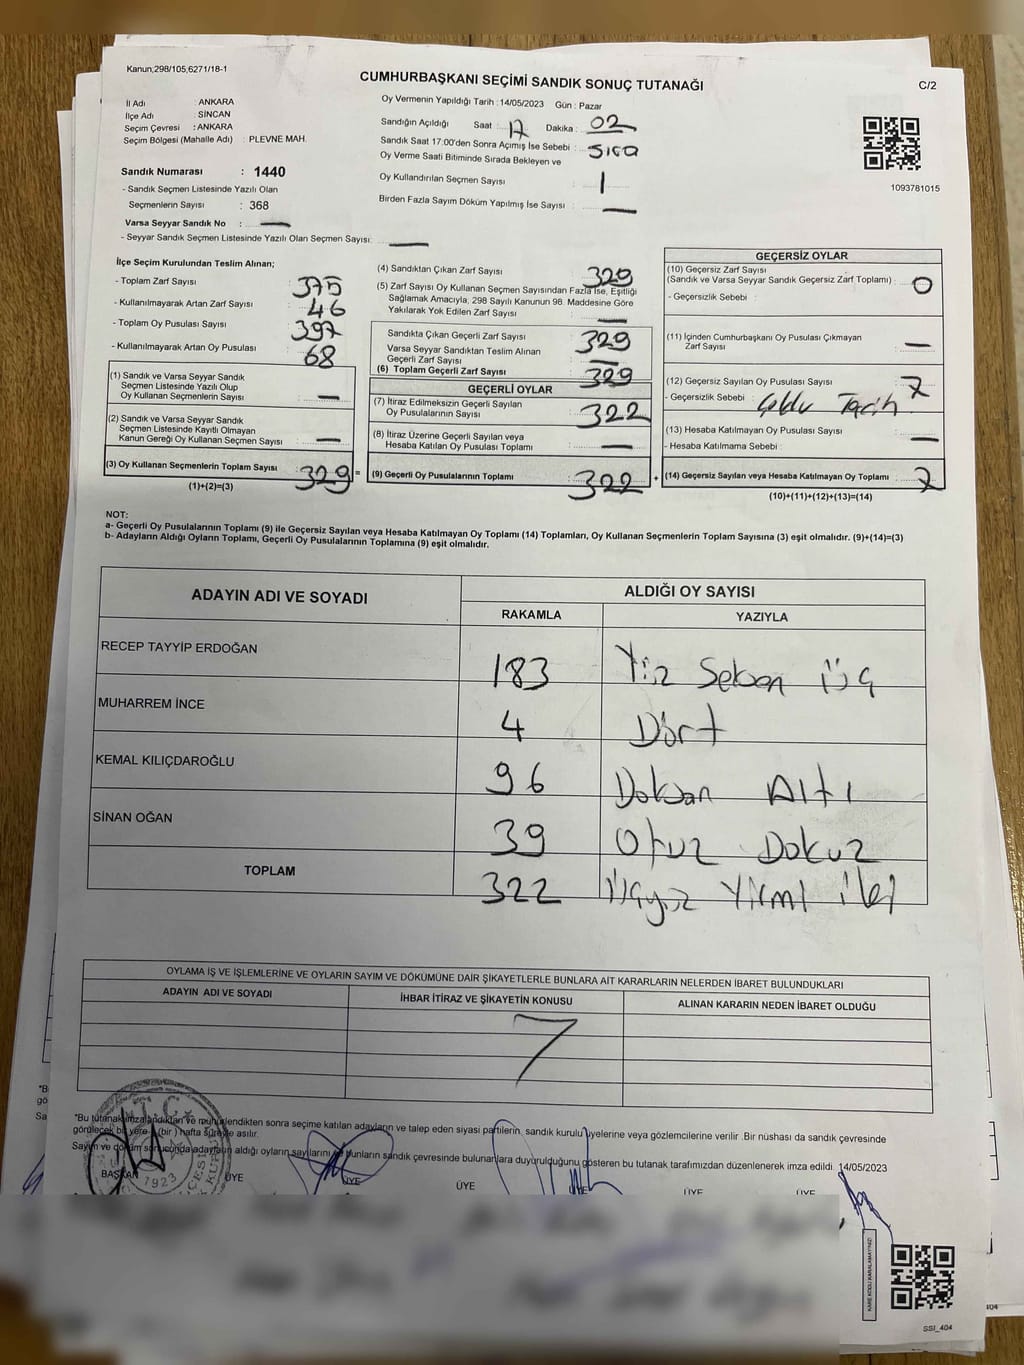 Kanun;298/105,6271/18-1
CUMHURBAŞKANI SEÇİMİ SANDIK SONUÇ TUTANAĞI
C/2
İl Adı : ANKARA
İlçe Adı : SİNCAN
Seçim Çevresi : ANKARA
Seçim Bölgesi (Mahalle Adı) : PLEVNE MAH.
Sandık Numarası : 1440
- Sandık Seçmen Listesinde Yazılı Olan
Seçmenlerin Sayısı : 368
Varsa Seyyar Sandık No : —
- Seyyar Sandık Seçmen Listesinde Yazılı Olan Seçmen Sayısı: —
Oy Vermenin Yapıldığı Tarih : 14/05/2023 Gün : Pazar
Sandığın Açıldığı Saat : 17 Dakika : 02
Sandık Saat 17:00'den Sonra Açımış İse Sebebi : Sıra
Oy Verme Saati Bitiminde Sırada Bekleyen ve
Oy Kullandırılan Seçmen Sayısı : 1
Birden Fazla Sayım Döküm Yapılmış İse Sayısı : —
1093781015
İlçe Seçim Kurulundan Teslim Alınan;
- Toplam Zarf Sayısı : 375
- Kullanılmayarak Artan Zarf Sayısı : 46
- Toplam Oy Pusulası Sayısı : 397
- Kullanılmayarak Artan Oy Pusulası : 68
(1) Sandık ve Varsa Seyyar Sandık
Seçmen Listesinde Yazılı Olup
Oy Kullanan Seçmenlerin Sayısı : —
(2) Sandık ve Varsa Seyyar Sandık
Seçmen Listesinde Kayıtlı Olmayan
Kanun Gereği Oy Kullanan Seçmen Sayısı : —
(3) Oy Kullanan Seçmenlerin Toplam Sayısı : 329 =
(1)+(2)=(3)
(4) Sandıktan Çıkan Zarf Sayısı : 329
(5) Zarf Sayısı Oy Kullanan Seçmen Sayısından Fazla İse, Eşitliği
Sağlamak Amacıyla, 298 Sayılı Kanunun 98. Maddesine Göre
Yakılarak Yok Edilen Zarf Sayısı : —
Sandıkta Çıkan Geçerli Zarf Sayısı : 329
Varsa Seyyar Sandıktan Teslim Alınan
Geçerli Zarf Sayısı : —
(6) Toplam Geçerli Zarf Sayısı : 329
GEÇERLİ OYLAR
(7) İtiraz Edilmeksizin Geçerli Sayılan
Oy Pusulalarının Sayısı : 322
(8) İtiraz Üzerine Geçerli Sayılan veya
Hesaba Katılan Oy Pusulası Toplamı : —
(9) Geçerli Oy Pusulalarının Toplamı : 322 +
GEÇERSİZ OYLAR
(10) Geçersiz Zarf Sayısı
(Sandık ve Varsa Seyyar Sandık Geçersiz Zarf Toplamı) : 0
- Geçersizlik Sebebi :
(11) İçinden Cumhurbaşkanı Oy Pusulası Çıkmayan
Zarf Sayısı : —
(12) Geçersiz Sayılan Oy Pusulası Sayısı : 7
- Geçersizlik Sebebi : Çoklu Tercih
(13) Hesaba Katılmayan Oy Pusulası Sayısı : —
- Hesaba Katılmama Sebebi :
(14) Geçersiz Sayılan veya Hesaba Katılmayan Oy Toplamı : 7
(10)+(11)+(12)+(13)=(14)
NOT:
a- Geçerli Oy Pusulalarının Toplamı (9) ile Geçersiz Sayılan veya Hesaba Katılmayan Oy Toplamı (14) Toplamları, Oy Kullanan Seçmenlerin Toplam Sayısına (3) eşit olmalıdır. (9)+(14)=(3)
b- Adayların Aldığı Oyların Toplamı, Geçerli Oy Pusulalarının Toplamına (9) eşit olmalıdır.
ADAYIN ADI VE SOYADI ALDIĞI OY SAYISI
RAKAMLA YAZIYLA
RECEP TAYYİP ERDOĞAN 183 Yüz Seksen Üç
MUHARREM İNCE 4 Dört
KEMAL KILIÇDAROĞLU 96 Doksan Altı
SİNAN OĞAN 39 Otuz Dokuz
TOPLAM 322 Üçyüz Yirmi İki
OYLAMA İŞ VE İŞLEMLERİNE VE OYLARIN SAYIM VE DÖKÜMÜNE DAİR ŞİKAYETLERLE BUNLARA AİT KARARLARIN NELERDEN İBARET BULUNDUKLARI
ADAYIN ADI VE SOYADI İHBAR İTİRAZ VE ŞİKAYETİN KONUSU ALINAN KARARIN NEDEN İBARET OLDUĞU
"Bu tutanak imzalandıktan ve mühürlendikten sonra seçime katılan adayların ve talep eden siyasi partilerin, sandık kurulu üyelerine veya gözlemcilerine verilir .Bir nüshası da sandık çevresinde
görülecek bir yere (bir) hafta süreyle asılır.
Sayım ve döküm sonucunda adayların aldığı oyların sayılarını ve bunların sandık çevresinde bulunanlara duyurulduğunu gösteren bu tutanak tarafımızdan düzenlenerek imza edildi. 14/05/2023
BAŞKAN ÜYE ÜYE ÜYE ÜYE ÜYE ÜYE
T.C.
1923
KARE KODU KARALAMAYINIZ!
SSI_404
404